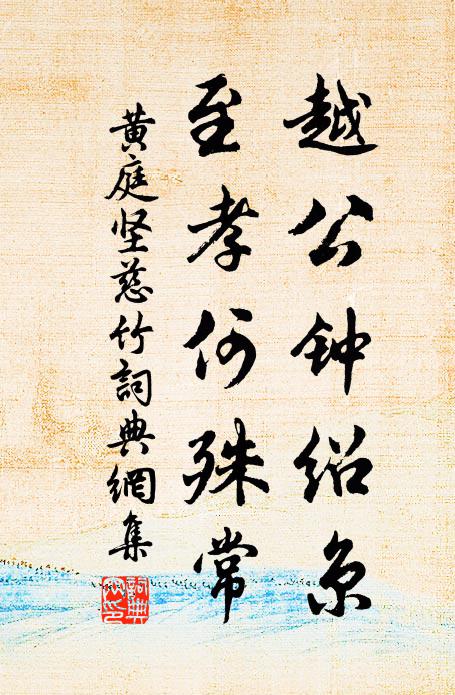 越公钟绍京
至孝何殊常
黄庭坚慈竹詞典網集